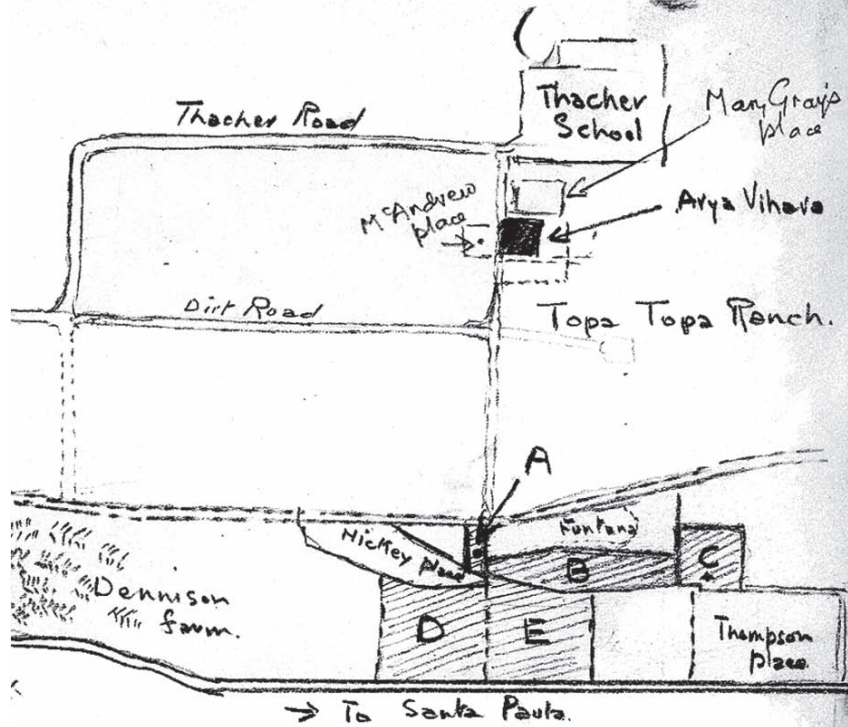 Thacher Road
Thacher
School
Mary Gray's
place
McAndrew
place
Arya Vihara
Dirt Road
Topa Topa Ranch.
A
Hickey place
Funtana
B
C
Dennison
farm.
D
E
Thompson
place
→ To Santa Paula.